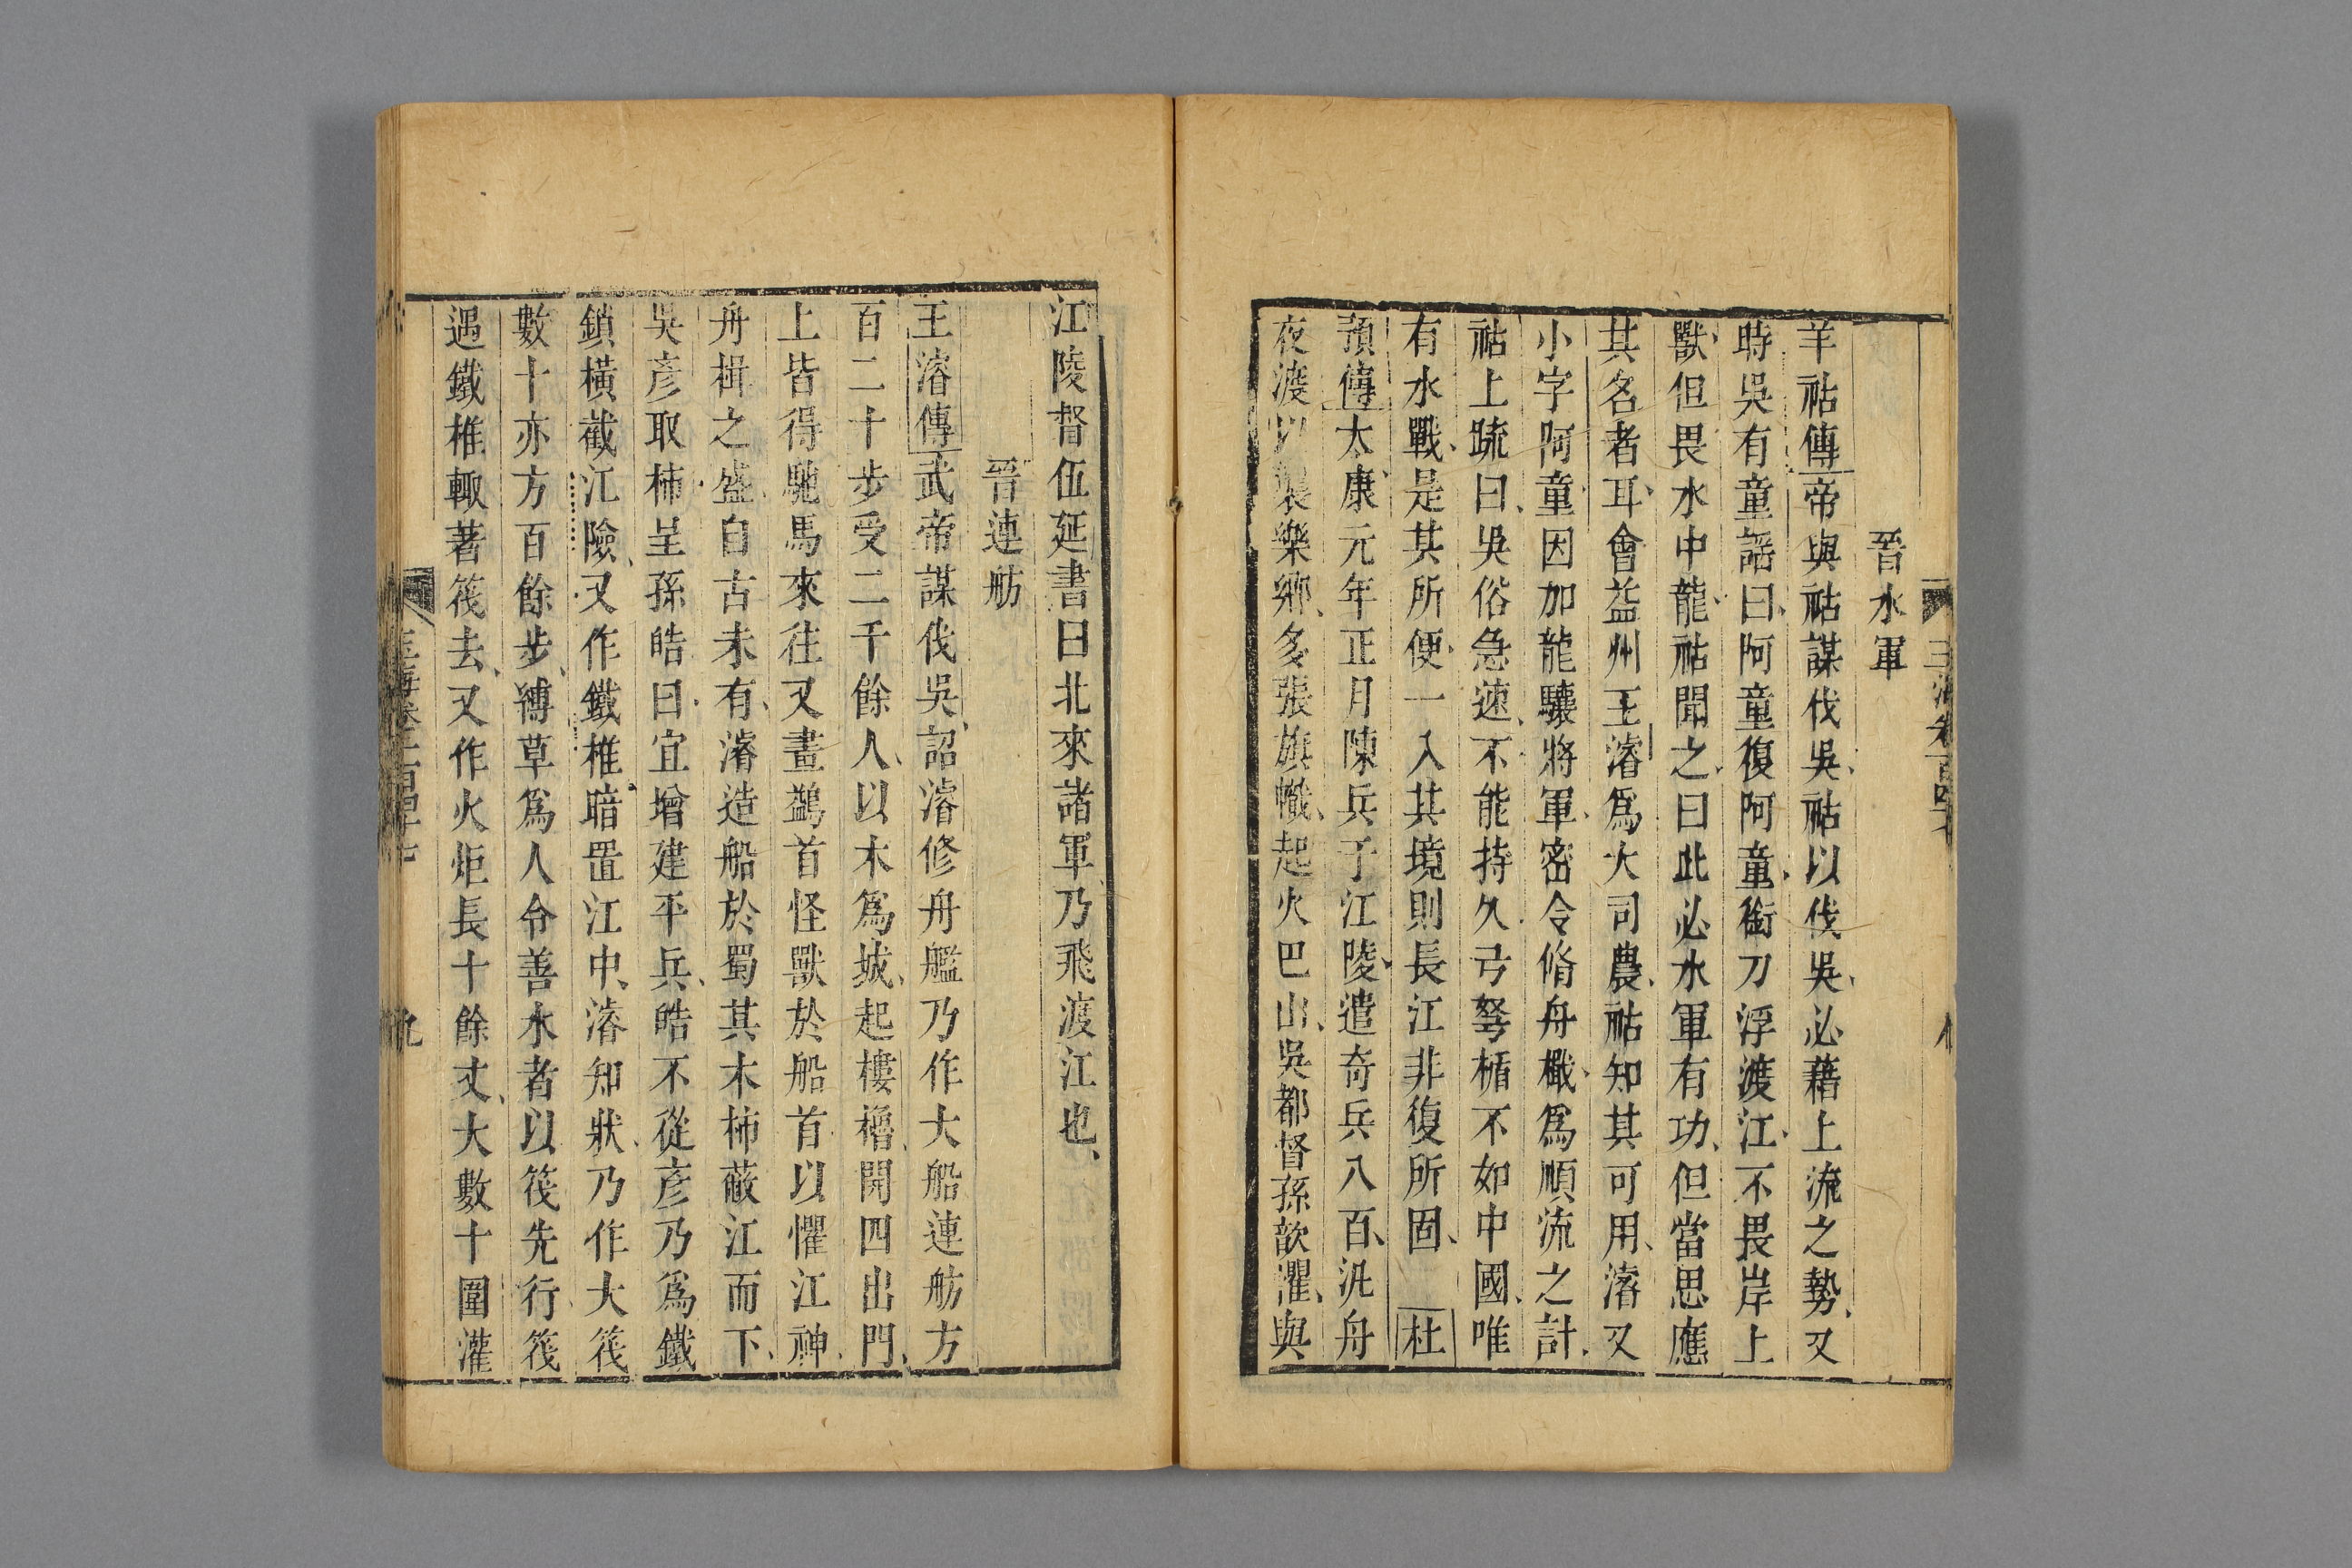 晉水軍
羊祜傳帝與祜謀伐吳、祜以伐吳、必藉上流之勢、又
時吳有童謠曰、阿童復阿童、銜刀浮渡江、不畏岸上
獸、但畏水中龍、祜聞之、曰此必水軍有功、但當思應
其名者耳、會益州王濬爲大司農、祜知其可用、濬又
小字阿童、因加龍驤將軍、密令脩舟檝、爲順流之計、
祜上疏曰、吳俗急速、不能持久、弓弩楯不如中國、唯
有水戰、是其所便、一入其境、則長江非復所固、杜
預傳太康元年正月陳兵于江陵、遣奇兵八百、汎舟
夜渡以襲樂鄉、多張旗幟、起火巴山、吳都督孫歆懼、與
江陵督伍延書曰北來諸軍、乃飛渡江也、
晉連舫
王濬傳武帝謀伐吳、詔濬修舟艦乃作大船連舫方
百二十步受二千餘人、以木爲城、起樓櫓、開四出門、
上皆得馳馬來往又畫鷁首怪獸於船首以懼江神、
舟楫之盛、自古未有、濬造船於蜀其木柹蔽江而下、
吳彥取柹呈孫皓曰、宜增建平兵、皓不從彥乃爲鐵
鎖橫截江險、又作鐵椎、暗置江中、濬知狀、乃作大筏
數十亦方百餘步、縛草爲人令善水者以筏先行、筏
遇鐵椎輙著筏去、又作火炬長十餘丈、大數十圍灌
九